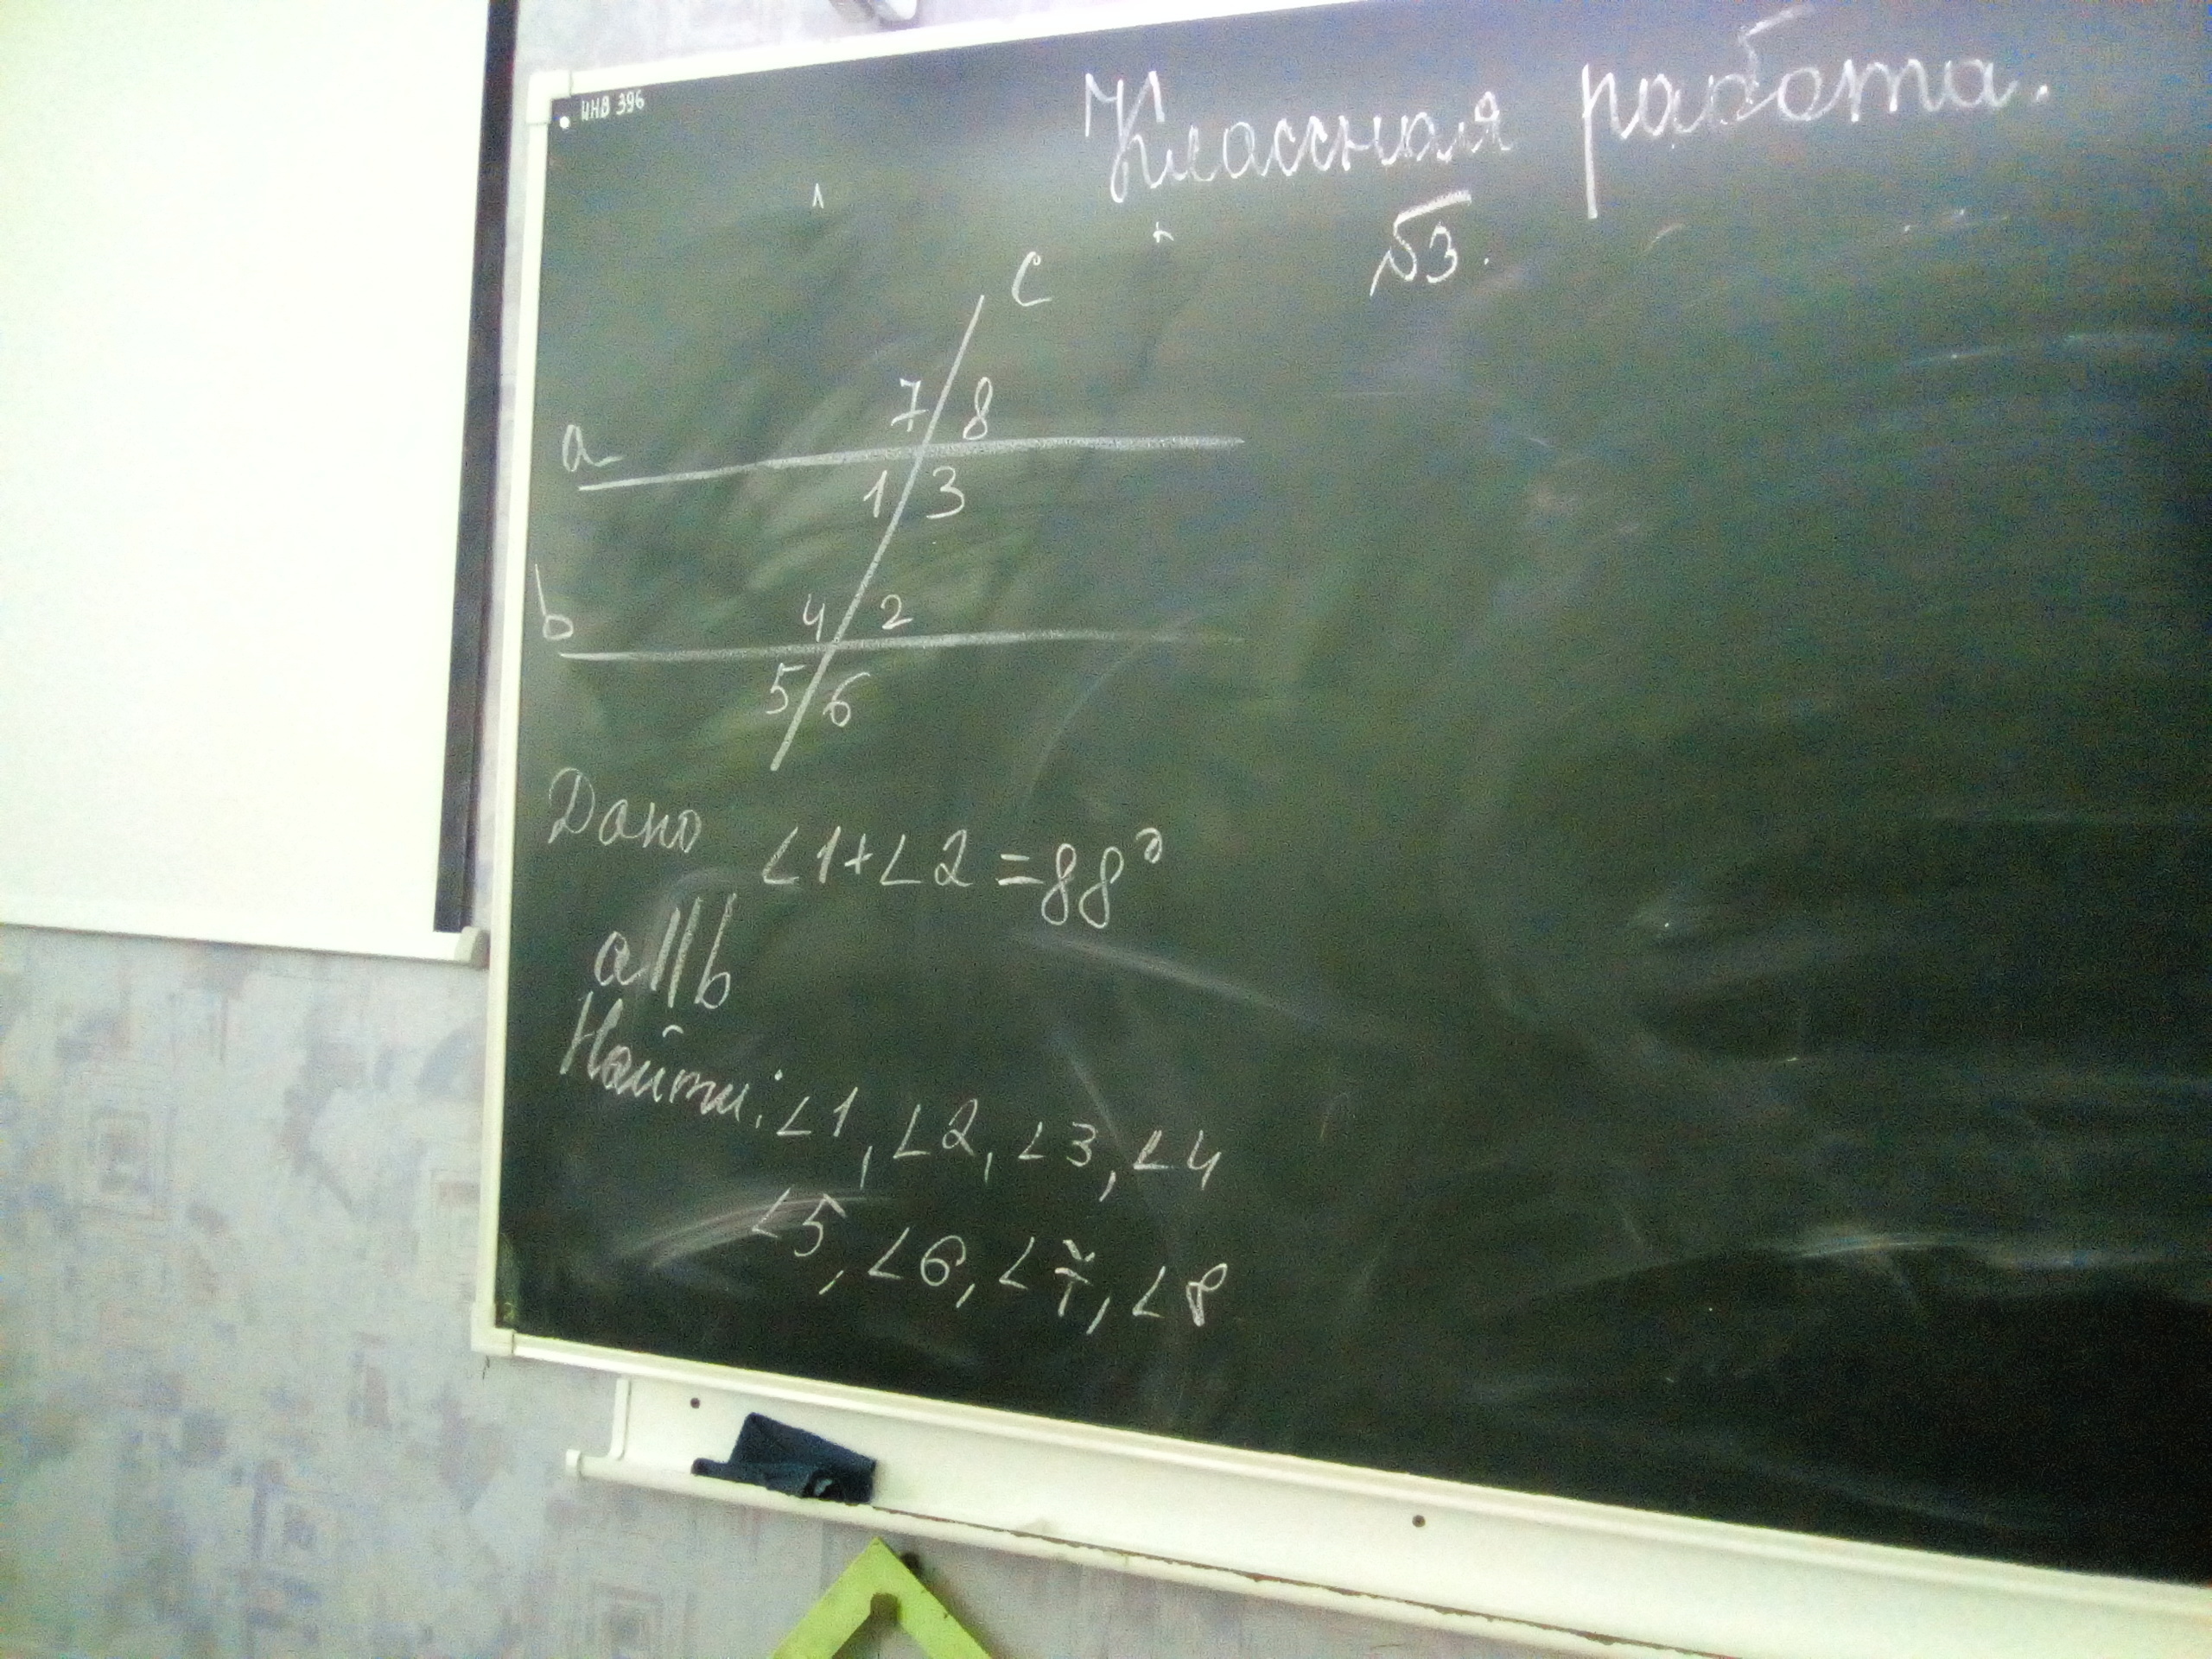 ИНВ 396
Классная работа.
√3.
c
7 8
a
1 3
b
4 2
5 6
Дано ∠1+∠2=88°
a||b
Найти: ∠1, ∠2, ∠3, ∠4
∠5, ∠6, ∠7, ∠8